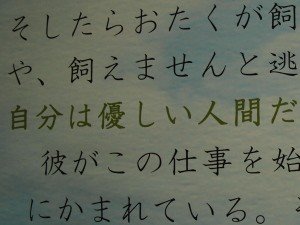 そしたらおたくが飼
や、飼えませんと逃
自分は優しい人間だ
彼がこの仕事を始
にかまれている。